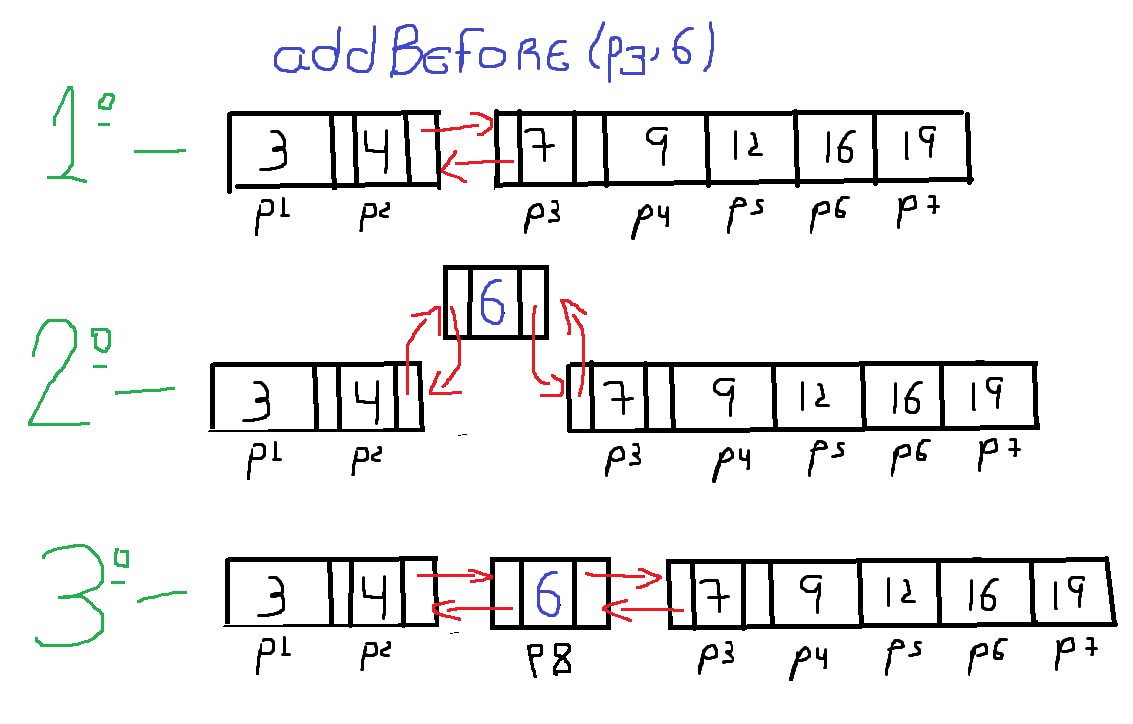 addBEFORE(p3,6)
1º - 3 4 7 9 12 16 19
p1 p2 p3 p4 p5 p6 p7
6
2º - 3 4 7 9 12 16 19
p1 p2 p3 p4 p5 p6 p7
3º - 3 4 6 7 9 12 16 19
p1 p2 p8 p3 p4 p5 p6 p7